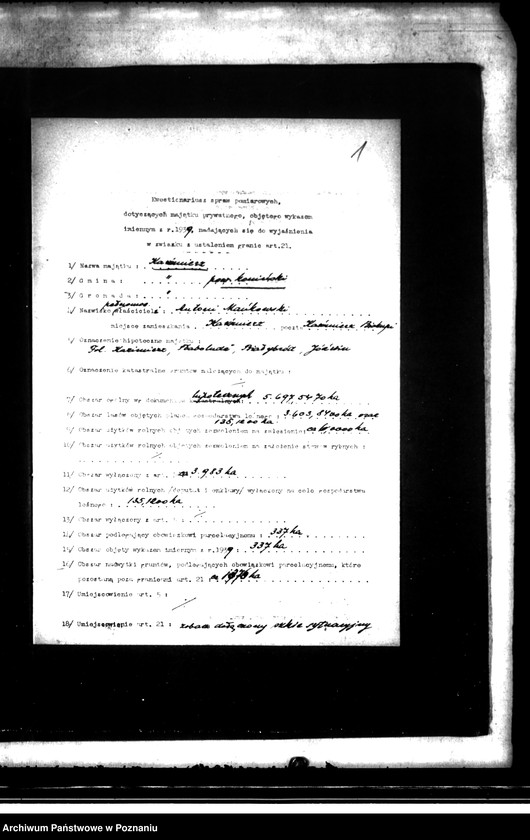 1
Kwestionariusz spraw pomiarowych,
dotyczących majątku prywatnego, objętego wykazem
imiennym z r.1939, nadających się do wyjaśnienia
w związku z ustaleniem granic art.21.
1/ Nazwa majątku : Kazimierz
2/ G m i n a : " pow. koniński
3/ G r o m a d a : "
pełnomoc.
4/ Nazwisko właściciela : Antoni Mańkowski
miejsce zamieszkania Kazimierz poczt. Kazimierz Biskupi
5/ Oznaczenie hipoteczne majątku :
Fol. Kazimierz,
6/ Oznaczenie katastralne gruntów należących do majątku :
7/ Obszar ogólny wg dokumentów hipotecznych 5.697,5470 ha
8/ Obszar lasów objętych planem gospodarstwa leśnego : 3.403,8400 ha oraz
135,1200 ha
9/ Obszar użytków rolnych objętych zezwoleniem na zalesienie:
10/ Obszar użytków rolnych objętych zezwoleniem na założenie stawów rybnych :
11/ Obszar wyłączony z art. ca 3.983 ha
12/ Obszar użytków rolnych /deputat i enklawy/ wyłączony na cele gospodarstwa
leśnego : 135,1200 ha
13/ Obszar wyłączony z art. :
14/ Obszar podlegający obowiązkowi parcelacyjnemu : 337 ha
15/ Obszar objęty wykazem imiennym z r.1939 : 337 ha
16/ Obszar nadwyżki gruntów, podlegających obowiązkowi parcelacyjnemu, które
pozostaną poza granicami art. 21 ha
17/ Umiejscowienie art. 5 :
18/ Umiejscowienie art. 21 : zobacz dołączony szkic sytuacyjny
Archiwum Państwowe w Poznaniu